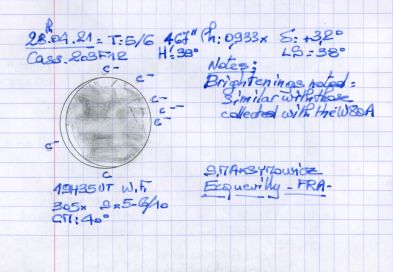 28.04.21= T:5/6 4.67" Ph: 0,933x ε: +3,2°
Cass. 203F12 H: 39° LS= 38°
Notes:
Brightenings noted =
Similar with those
collected with the W80A
C- C- C- C- C- C- C- C-
19H35UT W.F
305x S=5-6/10
CM: 40°
S.MAKSYMOWICZ
Ecquevilly - FRA-